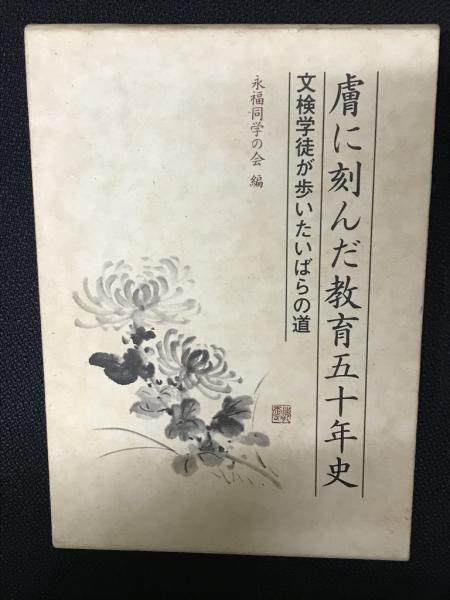 膚に刻んだ教育五十年史
文検学徒が歩いたいばらの道
永福同学の会 編